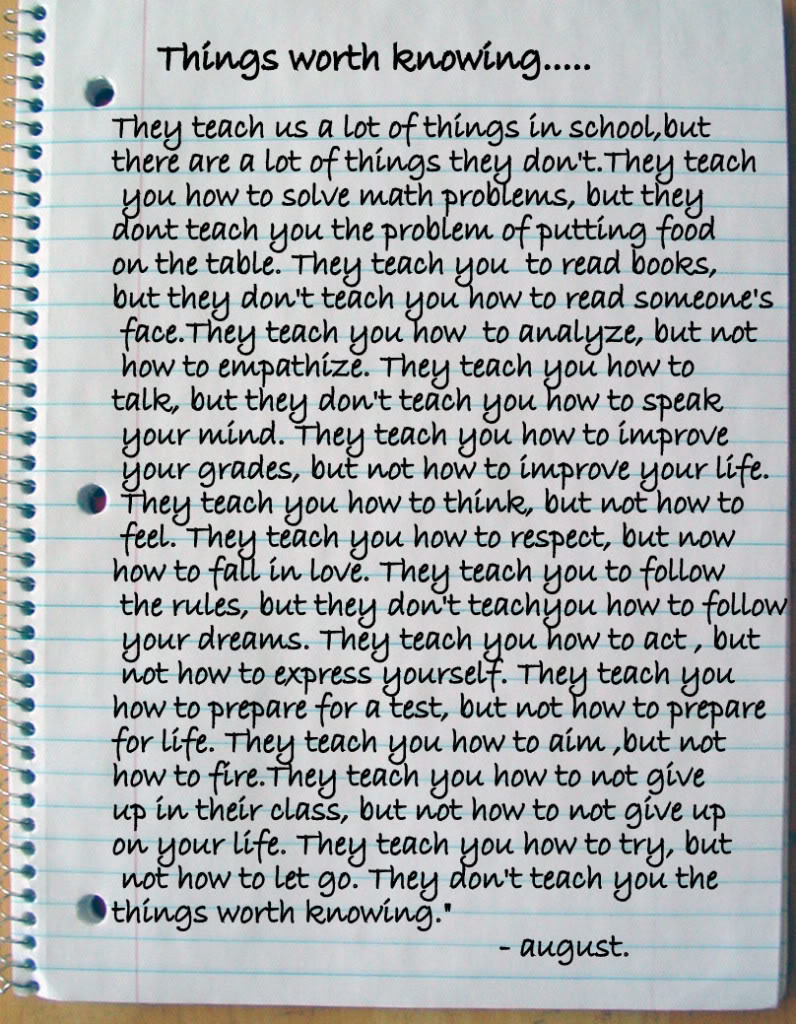 Things worth knowing.....
They teach us a lot of things in school,but
there are a lot of things they don't.They teach
you how to solve math problems, but they
dont teach you the problem of putting food
on the table. They teach you to read books,
but they don't teach you how to read someone's
face.They teach you how to analyze, but not
how to empathize. They teach you how to
talk, but they don't teach you how to speak
your mind. They teach you how to improve
your grades, but not how to improve your life.
They teach you how to think, but not how to
feel. They teach you how to respect, but now
how to fall in love. They teach you to follow
the rules, but they don't teachyou how to follow
your dreams. They teach you how to act , but
not how to express yourself. They teach you
how to prepare for a test, but not how to prepare
for life. They teach you how to aim ,but not
how to fire.They teach you how to not give
up in their class, but not how to not give up
on your life. They teach you how to try, but
not how to let go. They don't teach you the
things worth knowing."
- august.